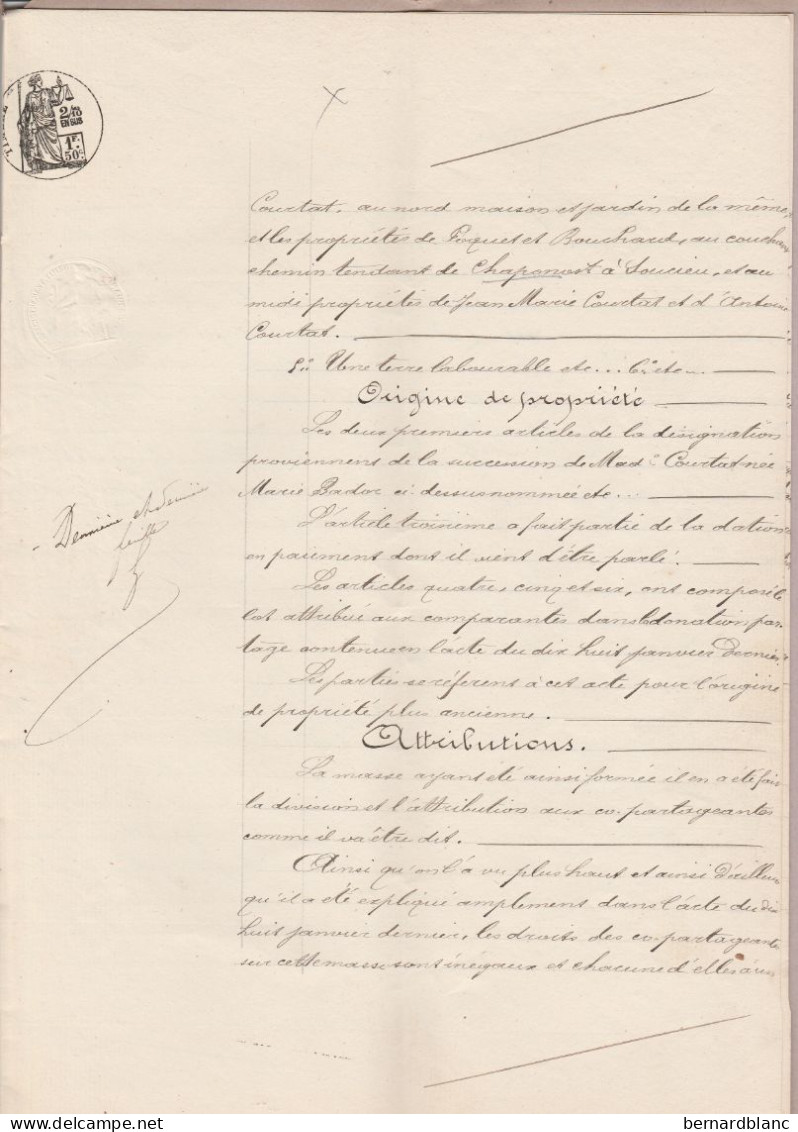 2/10
EN SUS
1F.
50c.
Courtat, au nord maison et jardin de la même,
et les propriétés de Poquet et Bouchard, au couchant
chemin tendant de Chaponost à Soucieu, et au
midi propriétés de Jean Marie Courtat et d'Antoine
Courtat.
5º Une terre labourable etc...
Origine de propriété
Les deux premiers articles de la désignation
proviennent de la succession de Made Courtat née
Marie Bador ci-dessus nommée etc...
L'article troisième a fait partie de la dation
en paiement dont il vient d'être parlé.
Les articles quatre, cinq et six, ont composé le
lot attribué aux comparantes dans la donation par-
tage contenue en l'acte du dix huit janvier dernier.
Les parties se réfèrent à cet acte pour l'origine
de propriété plus ancienne.
Attributions.
La masse ayant été ainsi formée il en a été fait
la division et l'attribution aux co-partageantes
comme il va être dit.
Ainsi qu'on l'a vu plus haut et ainsi d'ailleurs
qu'il a été expliqué amplement dans l'acte du dix
huit janvier dernier, les droits des co-partageantes
sur cette masse sont inégaux et chacune d'elles a un
feuille
bernardblanc